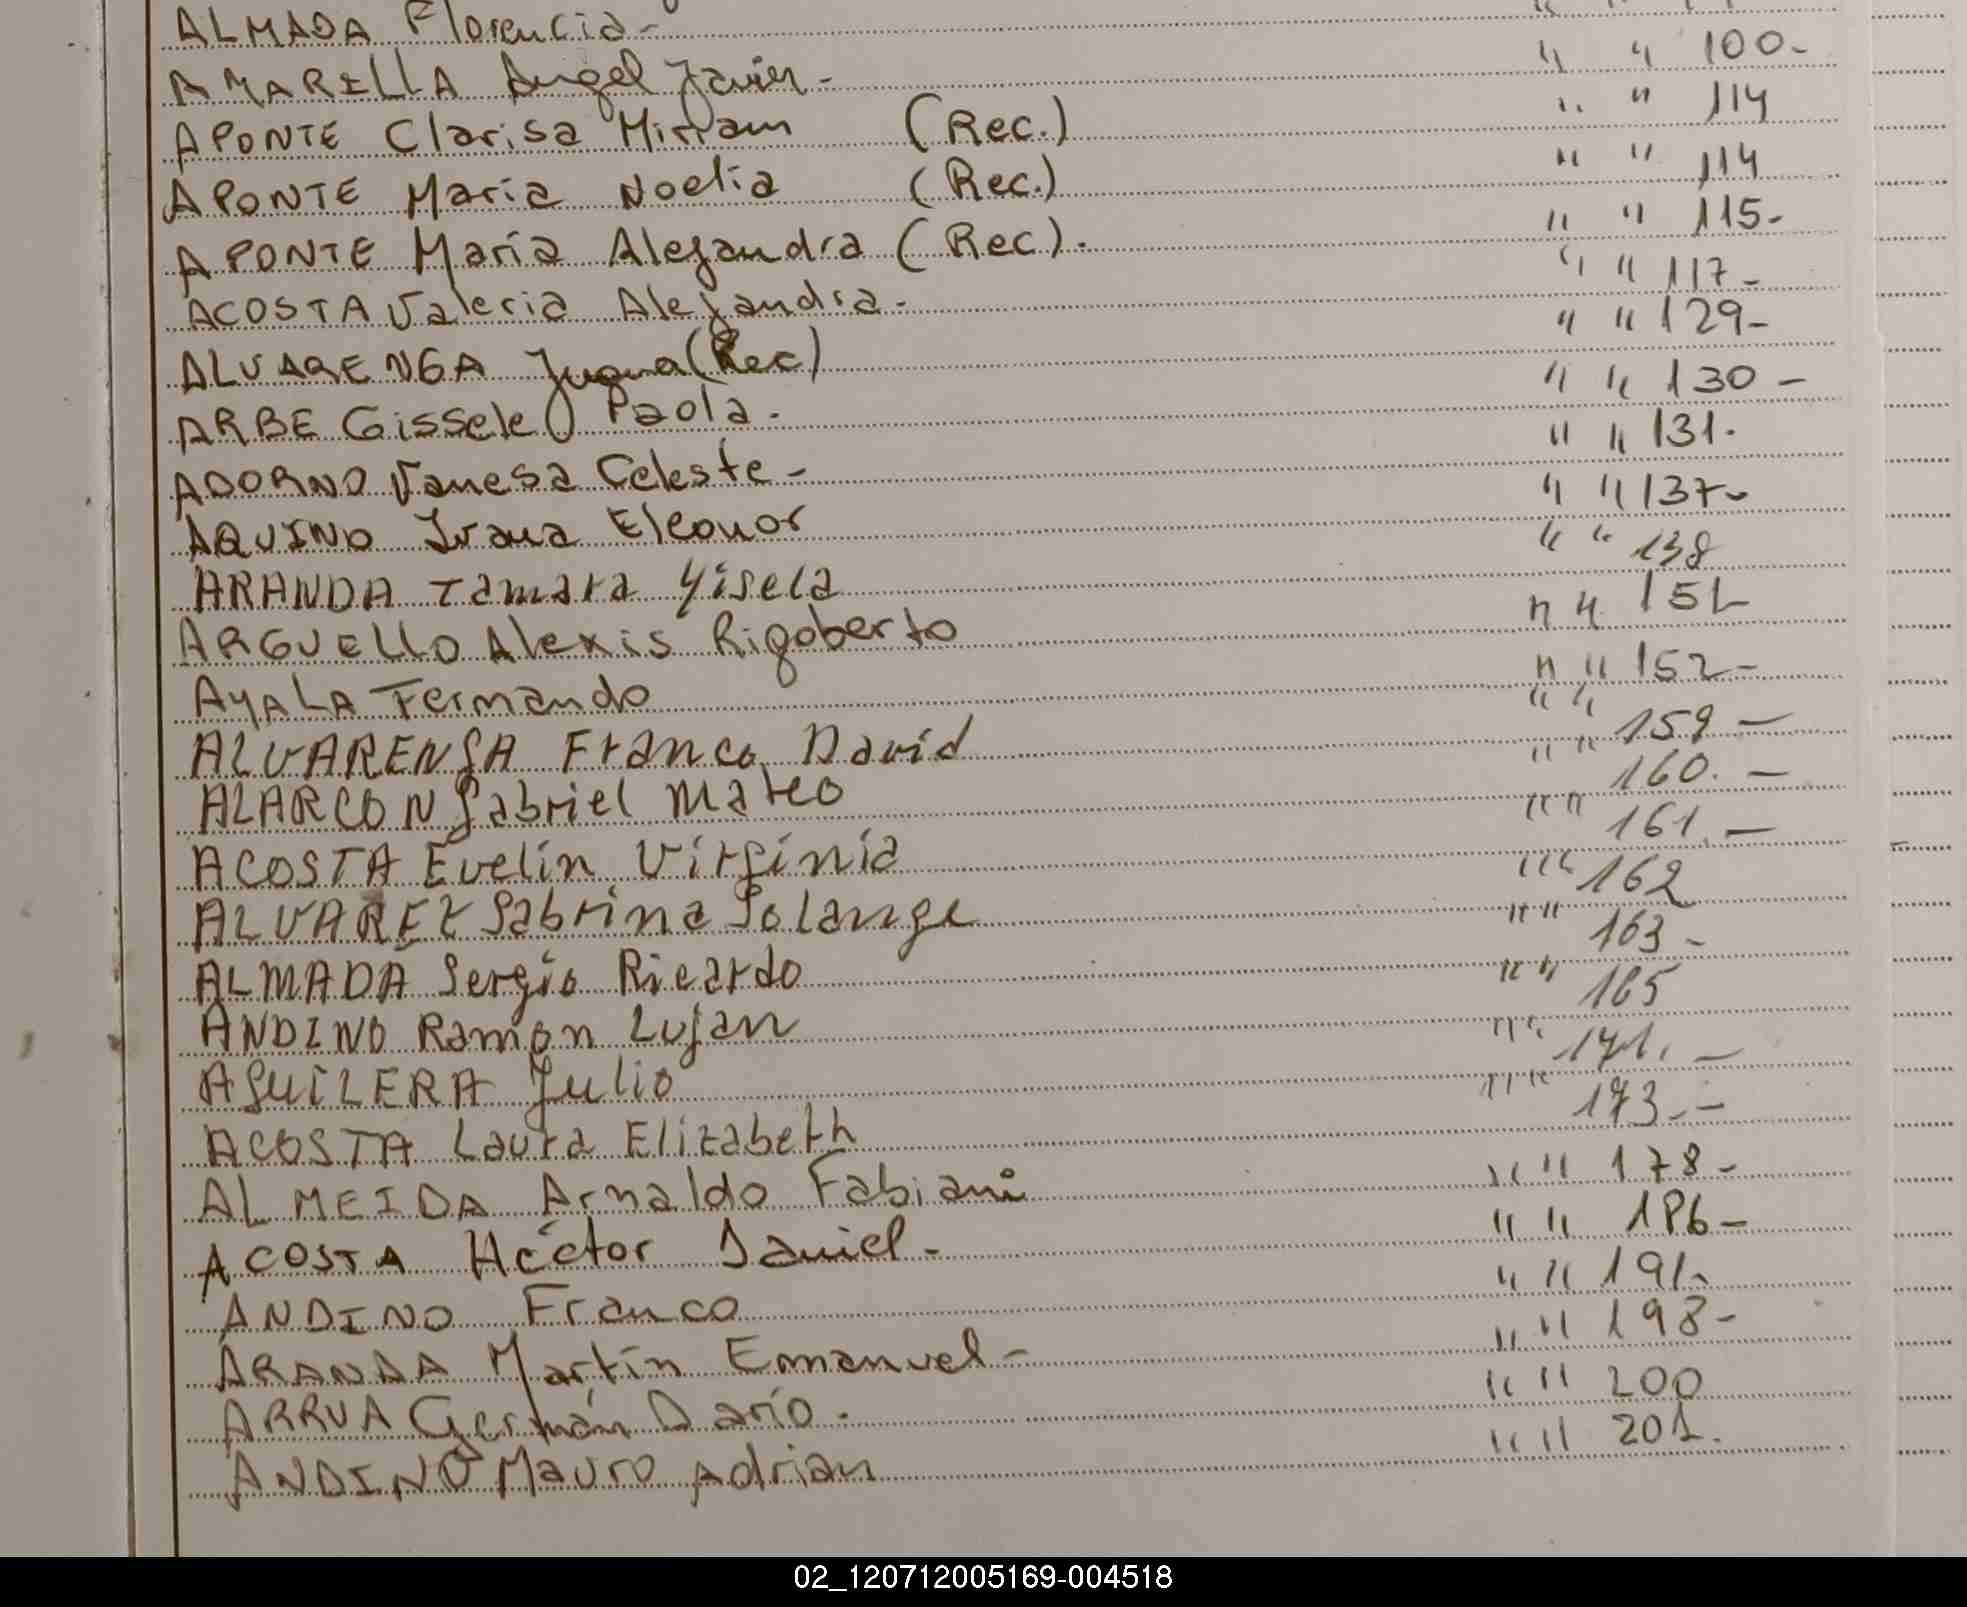 ALMADA Florencia-
AMARILLA Angel Javier - " " 100-
APONTE Clarisa Miriam (Rec.) " " 114
APONTE María Noelia (Rec.) " " 114
APONTE María Alejandra (Rec). " " 115-
ACOSTA Valeria Alejandra- " " 117-
ALVARENGA Juana (Rec) " " 129-
ARBE Gissele Paola. " " 130-
ADORNO Vanesa Celeste- " " 131.
AQUINO Ivana Eleonor " " 137-
ARANDA Tamara Yisela " " 138
ARGUELLO Alexis Rigoberto " " 151-
AYALA Fernando " " 152-
ALVARENGA Franco David " " 159-
ALARCON Gabriel Mateo " " 160.-
ACOSTA Evelin Virginia " " 161.-
ALVAREZ Sabrina Solange " " 162
ALMADA Sergio Ricardo " " 163-
ANDINO Ramón Lujan " " 165
AGUILERA Julio " " 171.-
ACOSTA Laura Elizabeth " " 173.-
ALMEIDA Arnaldo Fabian " " 178-
ACOSTA Héctor Daniel- " " 186-
ANDINO Franco " " 191-
ARANDA Martín Emanuel- " " 198-
ARRUA Germán Darío. " " 200
ANDINO Mauro Adrian " " 201.
02_120712005169-004518